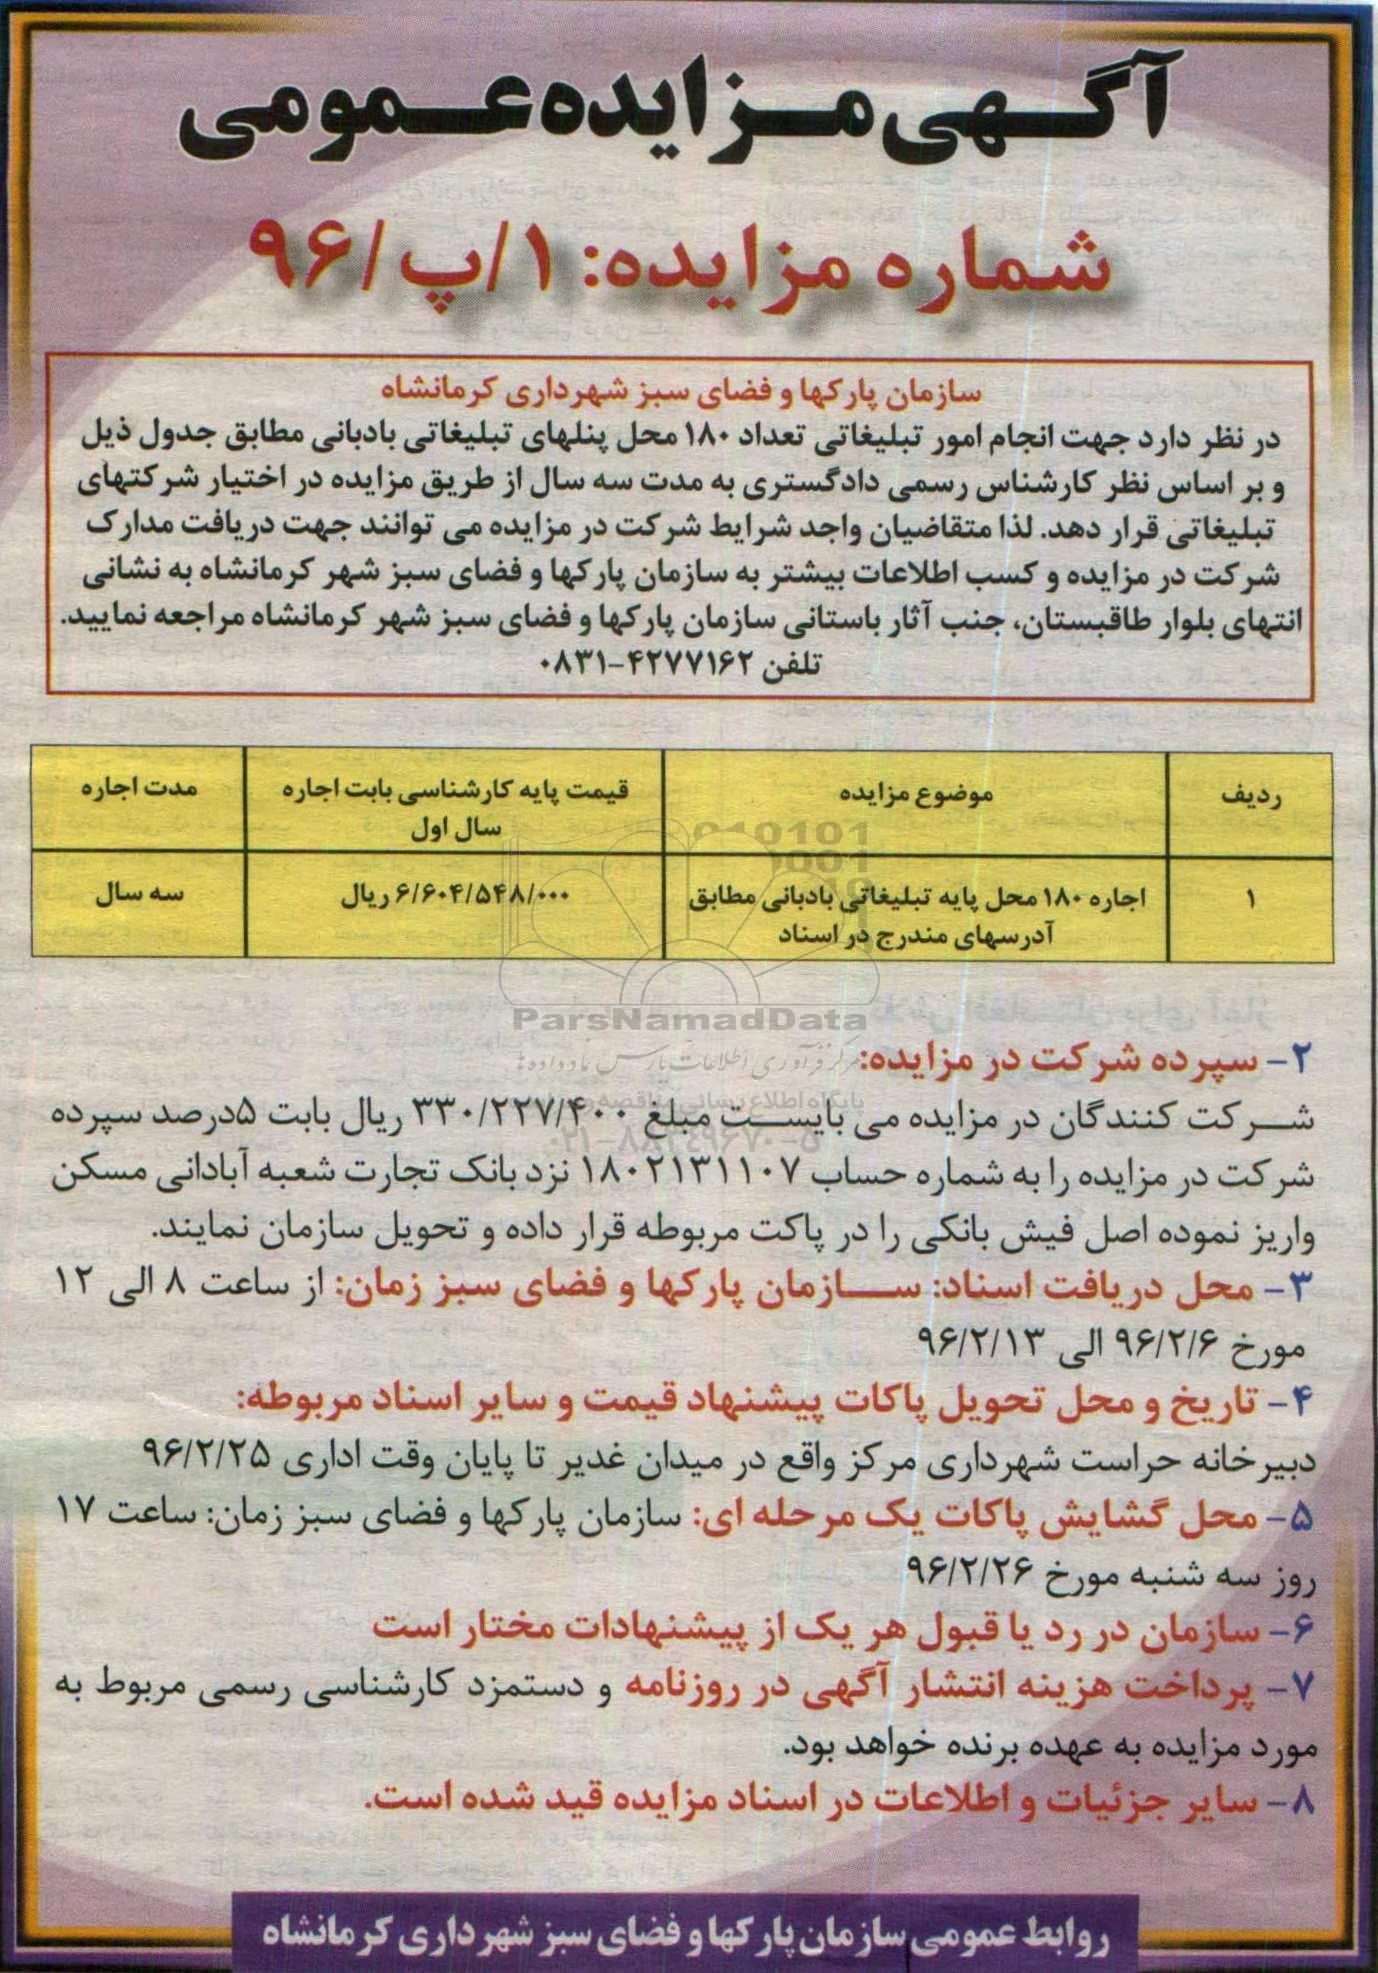 آگهی مزایده عمومی
شماره مزایده: ۱/پ/۹۶
سازمان پارکها و فضای سبز شهرداری کرمانشاه
در نظر دارد جهت انجام امور تبلیغاتی تعداد ۱۸۰ محل پنلهای تبلیغاتی بادبانی مطابق جدول ذیل
و بر اساس نظر کارشناس رسمی دادگستری به مدت سه سال از طریق مزایده در اختیار شرکتهای
تبلیغاتی قرار دهد. لذا متقاضیان واجد شرایط شرکت در مزایده می توانند جهت دریافت مدارک
شرکت در مزایده و کسب اطلاعات بیشتر به سازمان پارکها و فضای سبز شهر کرمانشاه به نشانی
انتهای بلوار طاقبستان، جنب آثار باستانی سازمان پارکها و فضای سبز شهر کرمانشاه مراجعه نمایید.
تلفن ۴۲۷۷۱۶۲-۰۸۳۱
ردیف موضوع مزایده قیمت پایه کارشناسی بابت اجاره مدت اجاره
سال اول
۱ اجاره ۱۸۰ محل پایه تبلیغاتی بادبانی مطابق ۶/۶۰۴/۵۴۸/۰۰۰ ریال سه سال
آدرسهای مندرج در اسناد
ParsNamadData
مرکز فرآوری اطلاعات پارس نماد داده ها
پایگاه اطلاع رسانی مناقصه
۲- سپرده شرکت در مزایده:
شرکت کنندگان در مزایده می بایست مبلغ ۳۳۰/۲۲۷/۴۰۰ ریال بابت ۵درصد سپرده
شرکت در مزایده را به شماره حساب ۱۸۰۲۱۳۱۱۰۷ نزد بانک تجارت شعبه آبادانی مسکن
واریز نموده اصل فیش بانکی را در پاکت مربوطه قرار داده و تحویل سازمان نمایند.
۳- محل دریافت اسناد: سازمان پارکها و فضای سبز زمان: از ساعت ۸ الی ۱۲
مورخ ۹۶/۲/۶ الی ۹۶/۲/۱۳
۴- تاریخ و محل تحویل پاکات پیشنهاد قیمت و سایر اسناد مربوطه:
دبیرخانه حراست شهرداری مرکز واقع در میدان غدیر تا پایان وقت اداری ۹۶/۲/۲۵
۵- محل گشایش پاکات یک مرحله ای: سازمان پارکها و فضای سبز زمان: ساعت ۱۷
روز سه شنبه مورخ ۹۶/۲/۲۶
۶- سازمان در رد یا قبول هر یک از پیشنهادات مختار است
۷- پرداخت هزینه انتشار آگهی در روزنامه و دستمزد کارشناسی رسمی مربوط به
مورد مزایده به عهده برنده خواهد بود.
۸- سایر جزئیات و اطلاعات در اسناد مزایده قید شده است.
روابط عمومی سازمان پارکها و فضای سبز شهرداری کرمانشاه